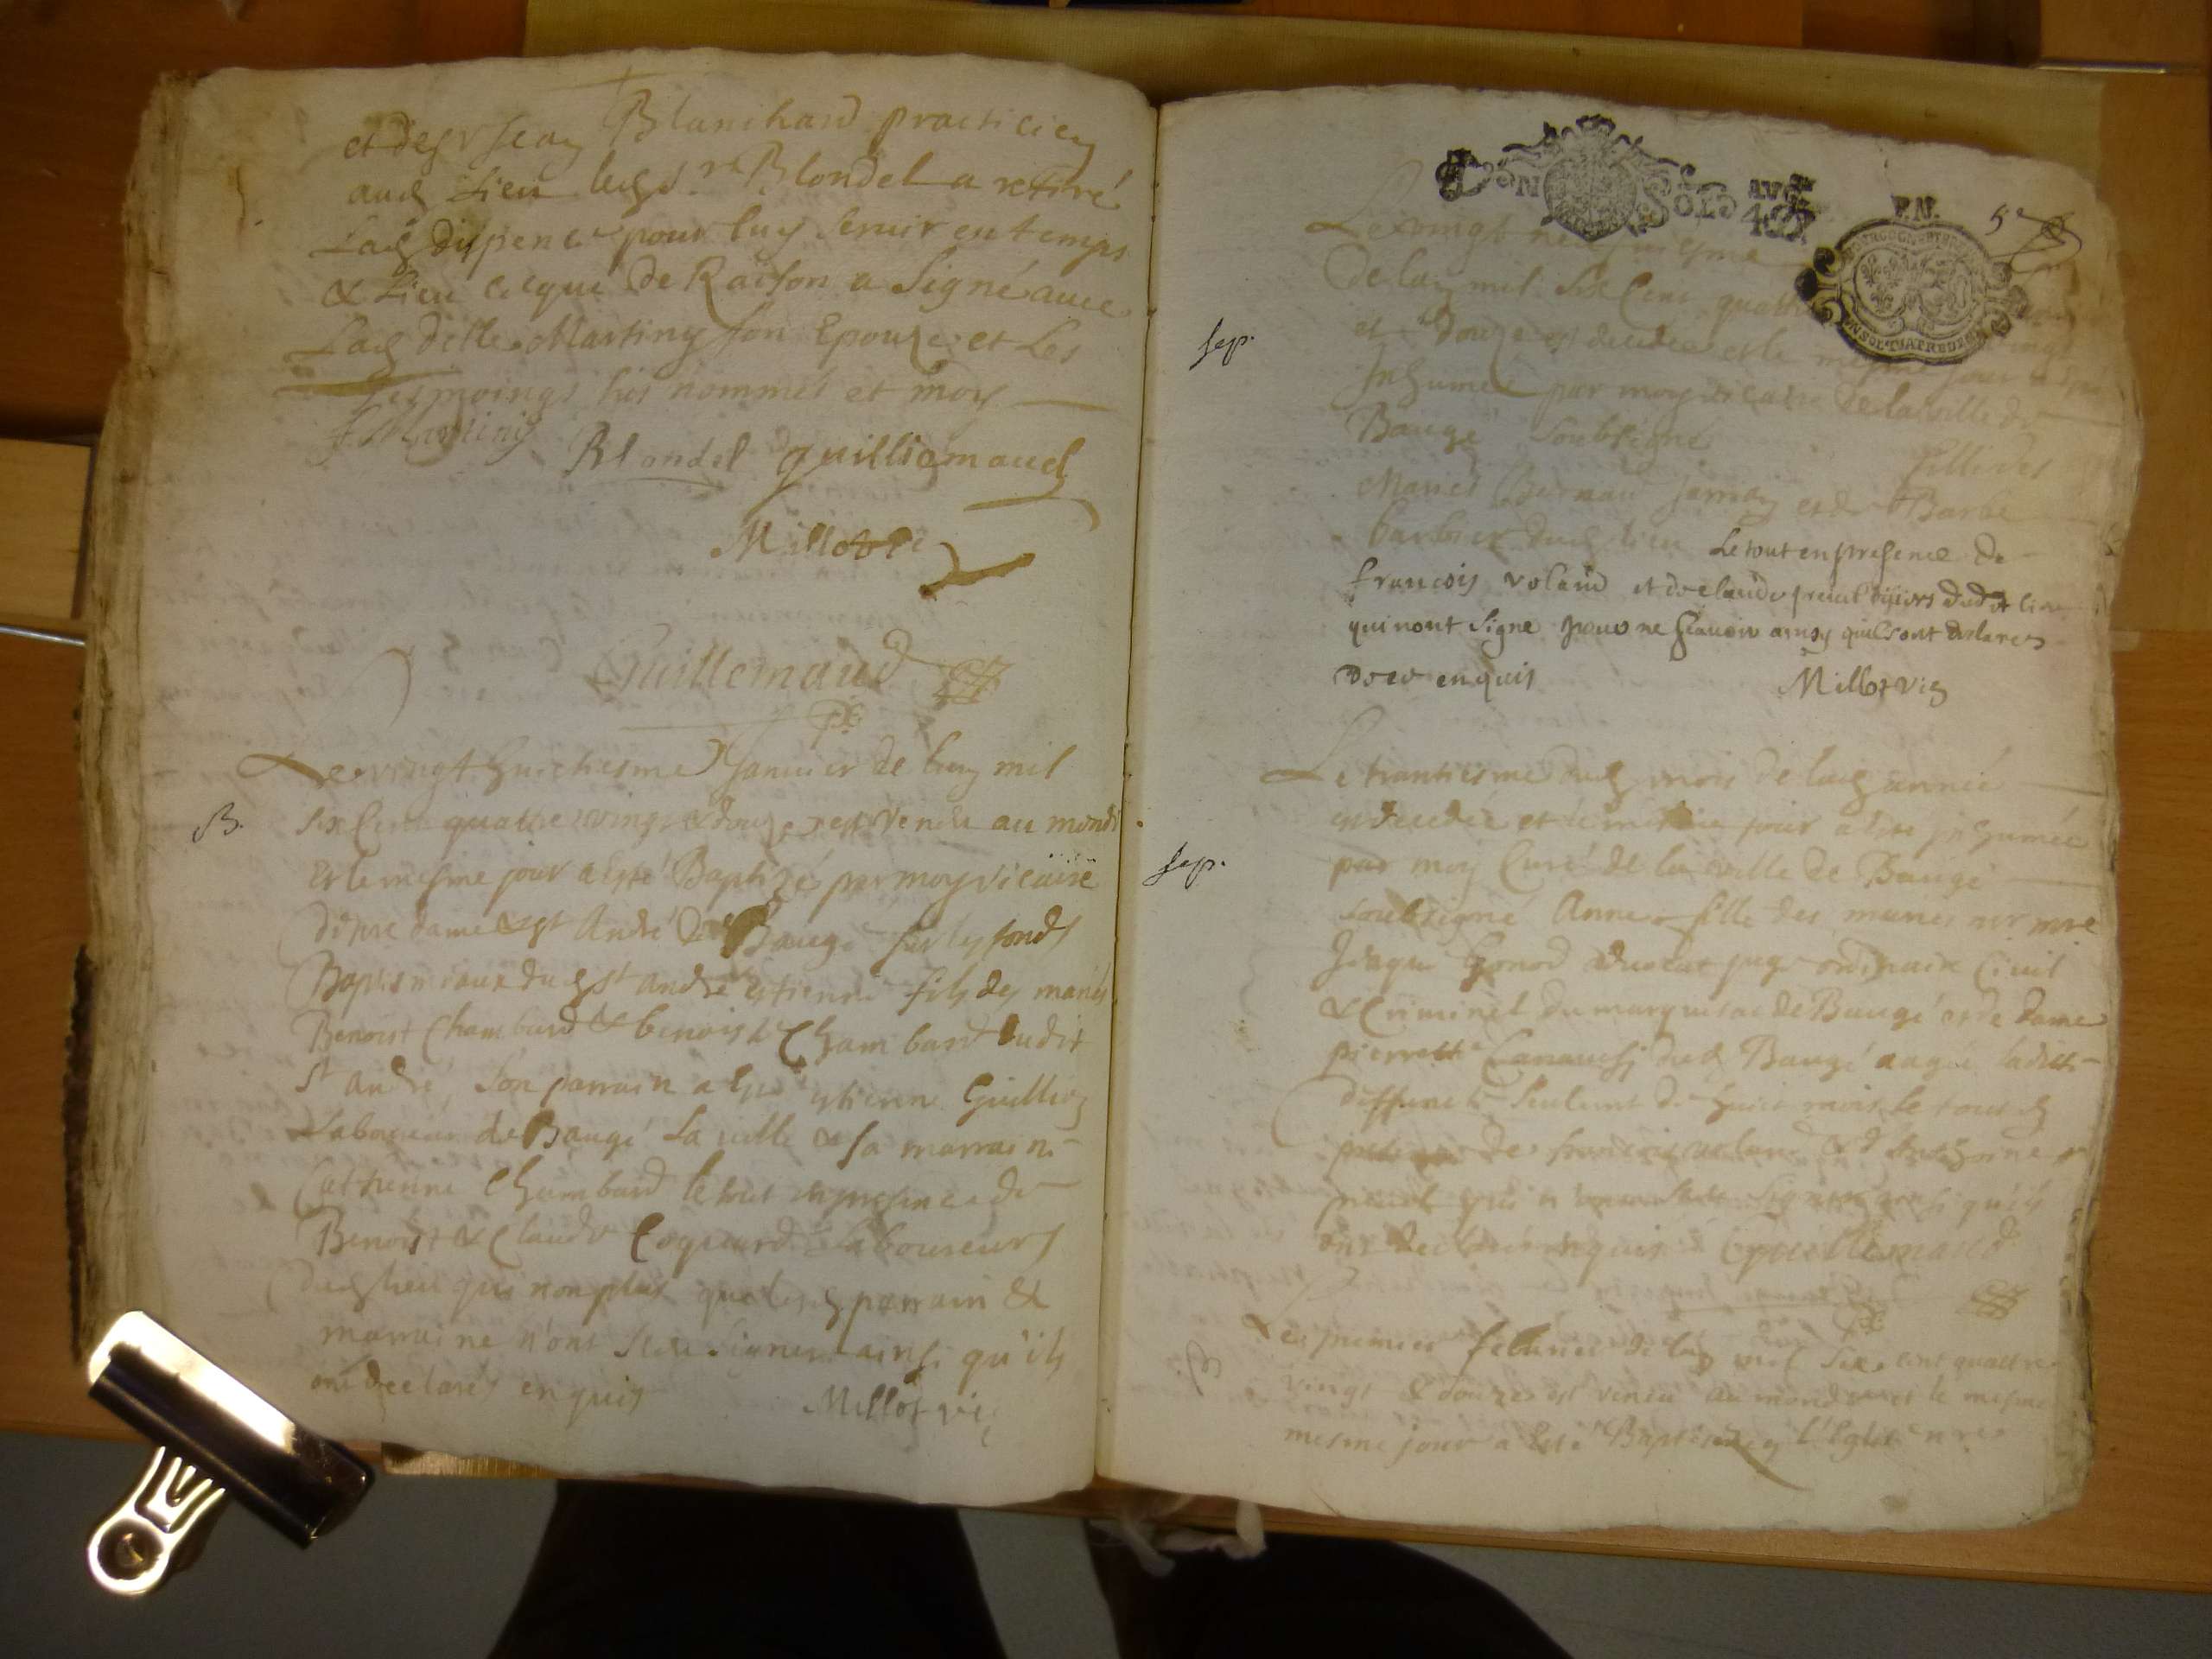 et de Sr Jean Blanchard practicien
aud lieu led Sr Blondel a retiré
Lad dispence pour luy servir en temps
& Lieu ce que de Raison a Signé avec
Lad delle Martiny son Epouze et Les
tesmoings sus nommés et moy
f Martiny
Blondel guilliemaud
Millot
Guillemaud
Le vingt huictiesme Janvier de lan mil
B. six Cent quattre vingt & douze est venu au monde
et le mesme jour a esté Baptizé par moy vicaire
de nre dame & st André de Baugé sur les fonds
Baptismaux dud st André estienne fils des mariés
Benoist Chambard & benoiste Chambard dudit
st André, son parrain a esté estienne Guillion
Laboureur de Baugé La ville & sa marraine
Cattherine Chambard le tout en presence de
Benoist & Claude Coquard Laboureurs
dud lieu qui non plus que lesd parrain &
marraine n'ont sceu signer ainsi qu'ils
ont declarés enquis Millot vic
DEN SOLD AVG
P.N. 5e
Le vingt
De lan mil Six Cent quattre vingt
sep. et Douze est decedée et le mesme jour a esté
Inhumée par moy vicaire de la ville de
Baugé soubsigné fille des
Mariés Bernard et de Barbe
barbier dud lieu Le tout en presence de
francois voland et de claude dudit lieu
qui nont signe pour ne scavoir ainsy quils ont declares
de ce enquis Millot vic
Le trantiesme dud mois de lad année
est decedée et le mesme jour a esté inhumée
sep. par moy Curé de la ville de Baugé
soubsigné Anne fille des mariés mr mre
Jacque Gonod advocat juge ordinaire Civil
& Criminel du marquisat de Baugé et de dame
pierrette dud Baugé aagée ladicte
deffuncte seulemt de huict mois le tout en
presence de francois voland & d'Anthoine
qui n'ont sceu signer ainsi qu'ils
ont declaré enquis Guillemaud
Le premier febvrier de lan mil six cent quattre
B vingt & douze est venu au monde et le mesme
mesme jour a esté Baptisé en l'Eglise nre